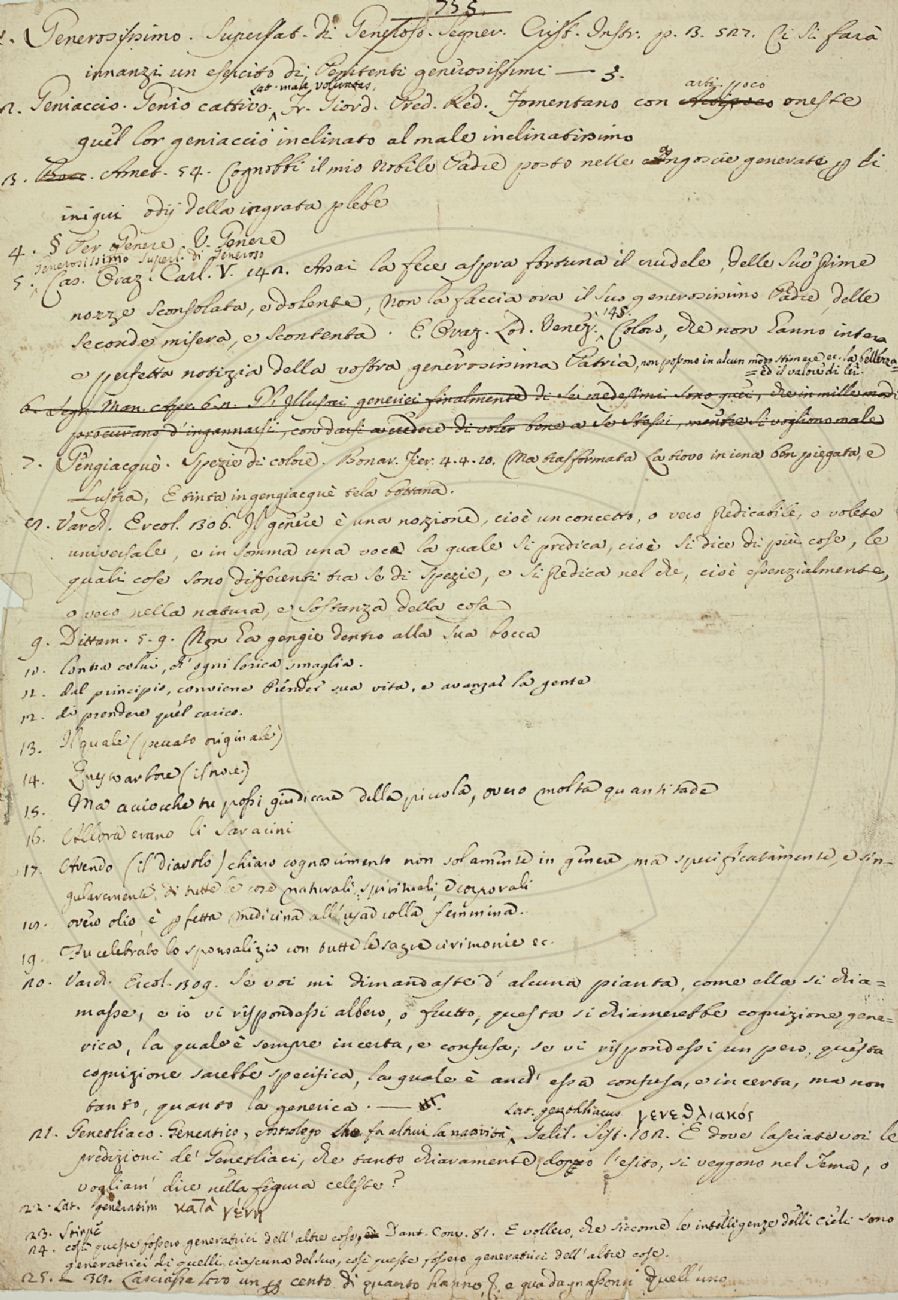 755.
1. Generosissimo. Superlat. di Generoso. Segner. Crist. Instr. p. 13. 527. Ci si farà
innanzi un esercito di Penitenti generosissimi — 5.
Lat. male voluntas. arti poco
2. Geniaccio. Genio cattivo. Fr. Giord. Pred. Red. Fomentano con oneste
quel lor geniaccio inclinato al male inclinatissimo
13. Amet. 54. Cognobbi il mio nobile Padre posto nelle angoscie generate p di
iniqui odij della ingrata plebe
4. § Per Genere. V. Genere
Generosissimo Superl. di Generoso
5. Cas. Oraz. Carl. V. 142. Assai la fece aspra fortuna il crudele, delle sue prime
nozze sconsolata, e dolente, non la faccia ora il suo generosissimo Padre, delle
seconde misera, e scontenta. E Oraz. Lod. Venez. 148. Coloro, che non hanno intera
e perfetta notizia della vostra generosissima Patria, non possono in alcun modo stimare ec. la bellezza
= ed il valor di lei.
6. Segn. Man. Apr. 6. 2. Gl'Illusi generici finalmente di se medesimi sono quei, che in mille modi
procurano d'ingannarsi, con darsi a credere di voler bene a se stessi, mentre si vogliono male
7. Gengiacquè. Spezie di colore. Bonar. Fier. 4. 4. 20. Ma trasformata la trovo in una ben piegata, e
Lustra, E tinta in gengiacquè tela bottana.
8. Varch. Ercol. 306. Il genere è una nozione, cioè un concetto, o vero predicabile, o volete
universale, e in somma una voce la quale si predica, cioè si dice di più cose, le
quali cose sono differenti tra se di spezie, e si predica nel che, cioè essenzialmente,
o vero nella natura, e sostanza della cosa
9. Dittam. 5. 9. Non ha gengie dentro alla sua bocca
10. Contra colui, ch'ogni lorica smaglia.
11. dal principio, conviene prender sua vita, e avanzar la gente
12. di prendere quel carico.
13. Il quale (peccato originale)
14. Quest'arbore (il noce)
15. Ma acciocche tu possi giudicare della piccola, overo molta quantitade
16. Allora erano li Saracini
17. Avendo (il Diavolo) chiaro cognoscimento non solamente in genere, ma specificatamente, e sin-
gularemente, di tutte le cose naturali, spirituali, e corporali
18. overo olio, è pfetta medicina all'usad colla femmina.
19. Fu celebrato lo sponsalizio con tutte le sagre cirimonie ec.
20. Varch. Ercol. 309. Se voi mi dimandaste d'alcuna pianta, come ella si chia=
masse, e io vi rispondessi albero, o frutto, questa si chiamerebbe cognizione gene=
rica, la quale è sempre incerta, e confusa; se vi rispondessi un pero, questa
cognizione sarebbe specifica, la quale è anch'essa confusa, e incerta, ma non
tanto, quanto la generica. —
Lat. genethliacus γενεθλιακός
21. Genetliaco. Geneatico, Astrologo che fa altrui la natività. Galil. Sist. 102. E dove lasciate voi le
predizioni de' Genetliaci, che tanto chiaramente doppo l'esito, si veggono nel Tema, o
vogliam' dire nella figura celeste?
22. Lat. generatim κατὰ γένη
23. Stirpe
24. così queste fossero generatrici dell'altre cose, Dant. Conv. 81. E vollero, che siccome le intelligenze delli cieli sono
generatrici di quelli, ciascuna del suo, così queste fossero generatrici dell'altre cose.
25. — 39. Lasciasse loro un p cento di quanto hanno, e guadagnassono quell'uno